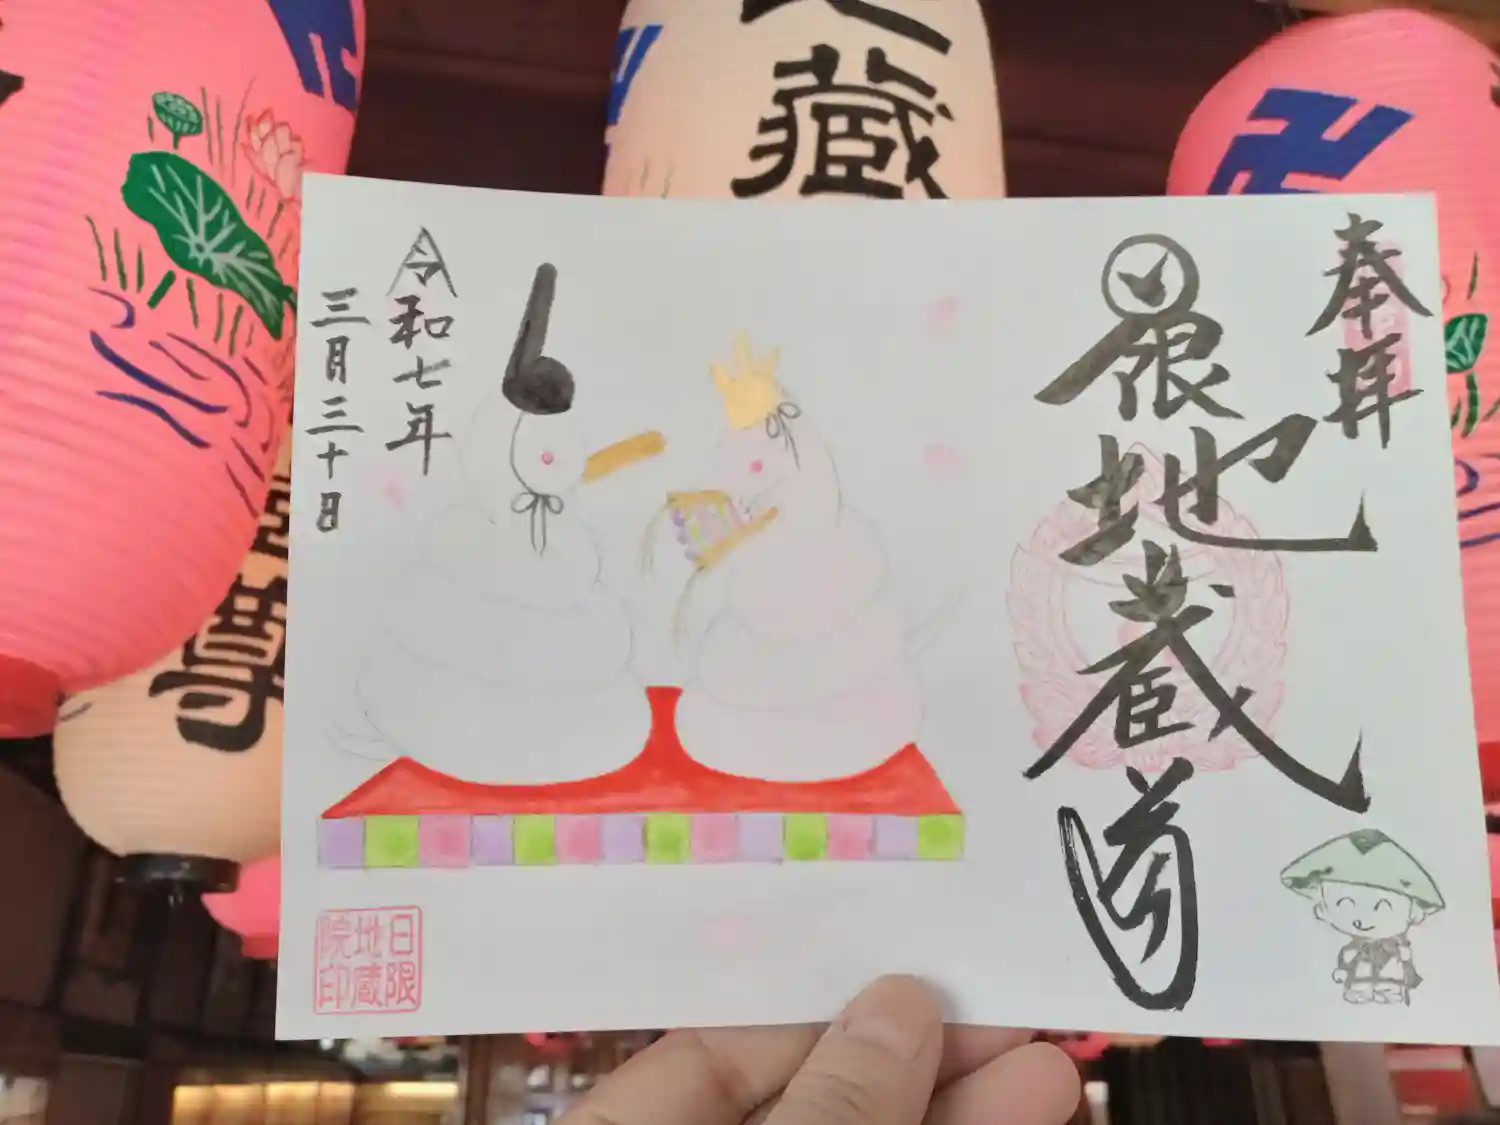 奉拝
日限地蔵尊
令和七年
三月三十日
日限
地蔵
院印
地蔵
尊
卍